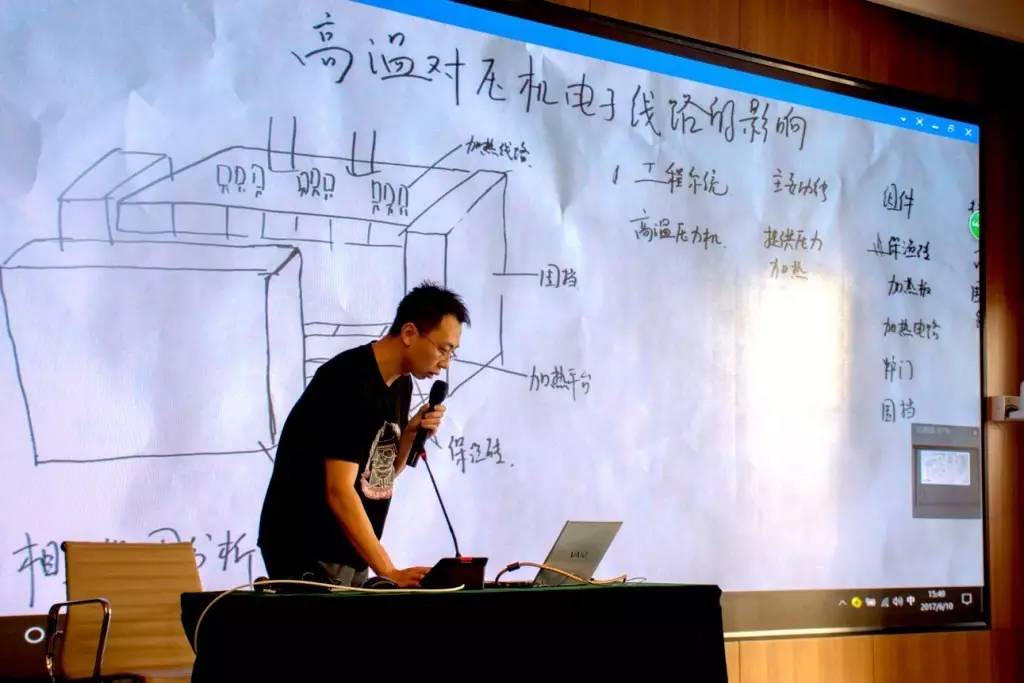 高温对压机电子线路的影响
加热线路
围挡
加热平台
保温砖
1 工程系统 主要功能 组件
高温压力机 提供压力 加热
保温砖
加热板
加热电路
炉门
围挡
分析
15:49
2017/6/10
中
VAIO